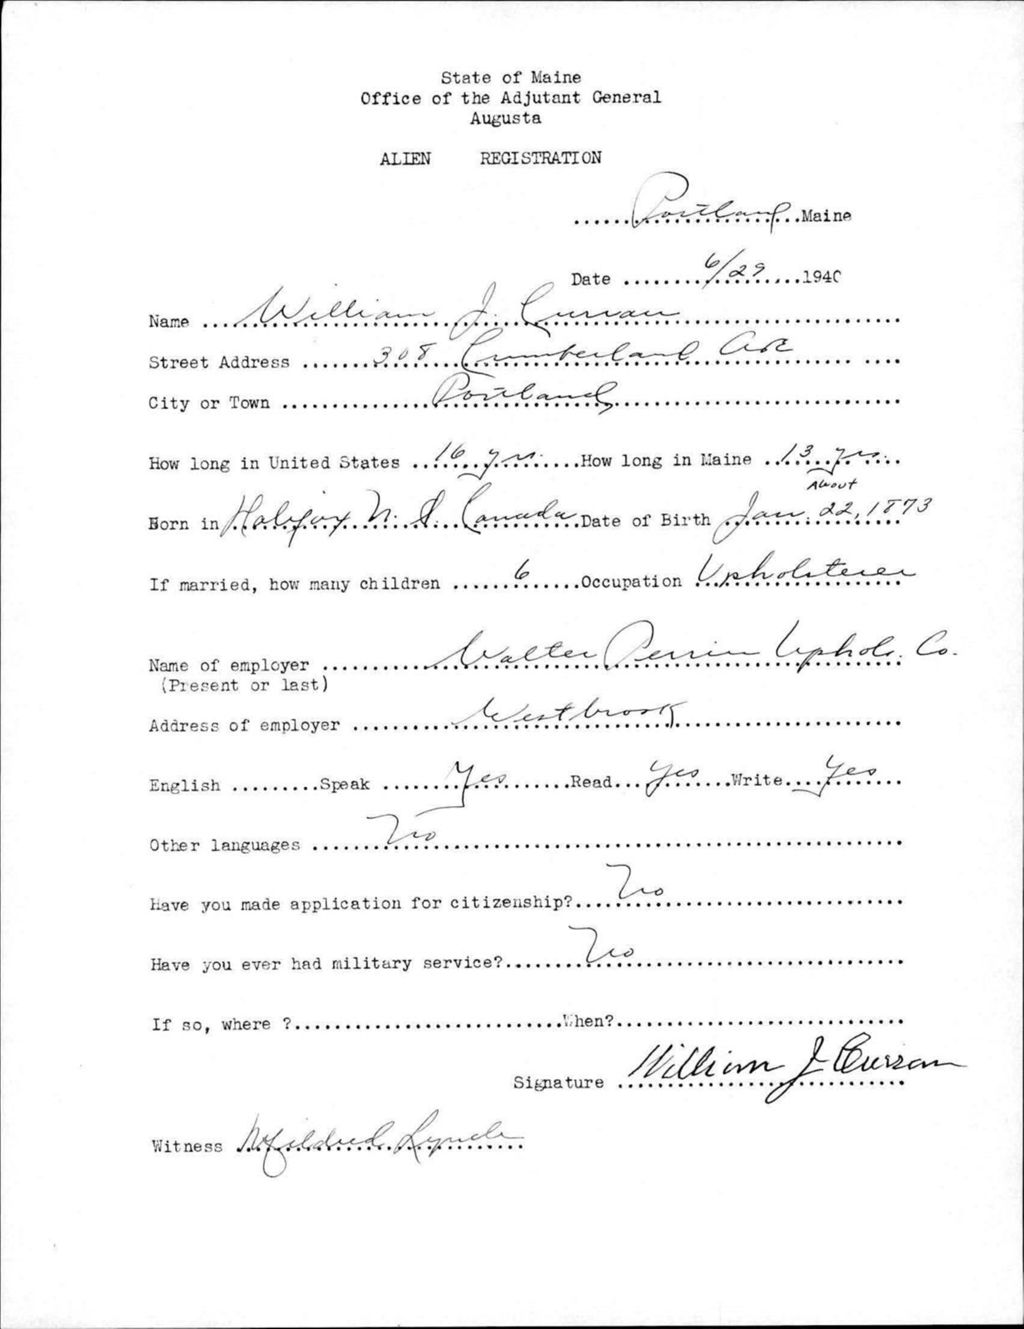 State of Maine
Office of the Adjutant General
Augusta
ALIEN REGISTRATION
......Portland...Maine
Date ........6/29......1940
Name ....William J. Curran......................
Street Address .......308 Cumberland Ave...... ....
City or Town ...............Portland..............................
How long in United States ..16 yrs......How long in Maine ..13 yrs...
About
Born in Halifax N. S. Canada Date of Birth Jan. 22, 1873
If married, how many children ......6......Occupation Upholsterer
Name of employer ..........Walter Perrin Uphols. Co.
(Present or last)
Address of employer ..........Westbrook......................
English .........Speak .......Yes.........Read...Yes......Write...Yes...
Other languages .......No..........................................
Have you made application for citizenship?....No......................
Have you ever had military service?........No..........................
If so, where ?...........................When?.............................
Signature William J Curran
Witness Mildred Lynch